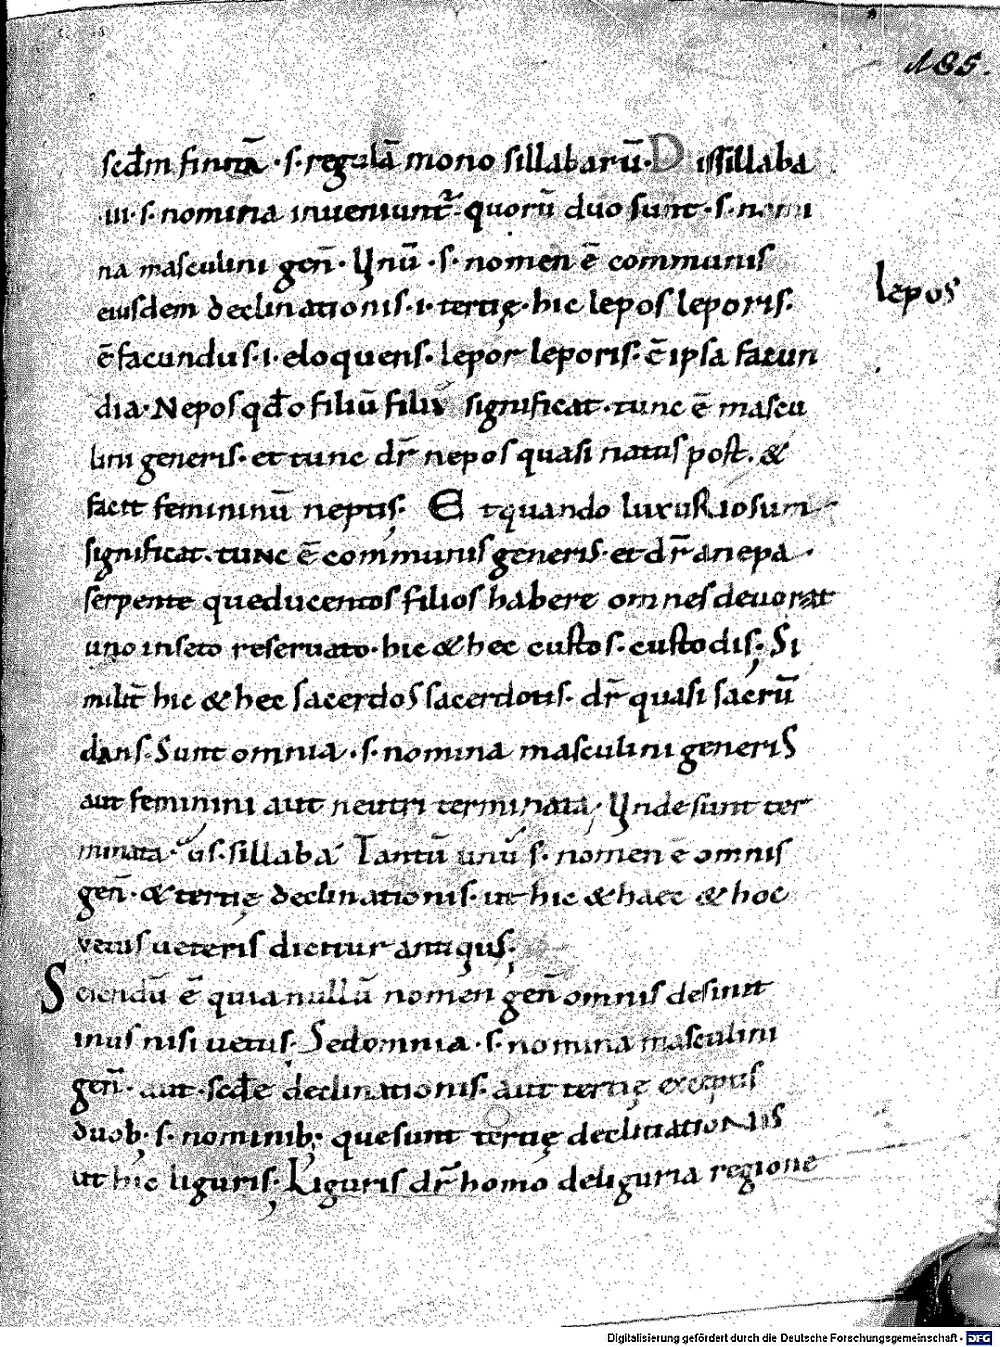 185.
scđm finitā · s · regulā mono sillabarū · Dissillaba
· iii · s · nomina inueniunt̄ · quorū duo sunt · s · nomi
na masculini gen̄ · Vnū · s · nomen ē communis
eiusdem declinationis · i · tertię · hic lepos leporis ·
lepos
ē facundus · i · eloquens · lepor leporis · ē ipsa facun
dia · Nepos qđo filiū filii significat · tunc ē mascu
lini generis · et tunc dr̄ nepos quasi natus post · &
facit femininū neptis · Et quando luxuRiosum
significat · tunc ē communis generis · et dr̄ a nepa ·
serpente que ducentos filios habere omnes deuorat
uno in seto reseruato · hic & hec custos · custodis ; Si
milit̄ hic & hec sacerdos sacerdotis · dr̄ quasi sacrū
dans · Sunt omnia · s · nomina masculini generis
aut feminini aut neutri terminata · Vnde sunt ter
minata · sillaba Tantū unū s · nomen ē omnis
gen̄ · & tertię declinationis · ut hic & haec & hoc
vetus ueteris dicitur antiqus ;
Sciendū ē quia nullū nomen gen̄ omnis desinit
in us nisi uetus · Sed omnia · s · nomina masculini
gen̄ · aut · scđe declinationis · aut tertię exceptis
duob ; s · nominib ; que sunt tertię declinationis
ut hic liguris ; Liguris dr̄ homo de liguria regione
Digitalisierung gefördert durch die Deutsche Forschungsgemeinschaft - DFG